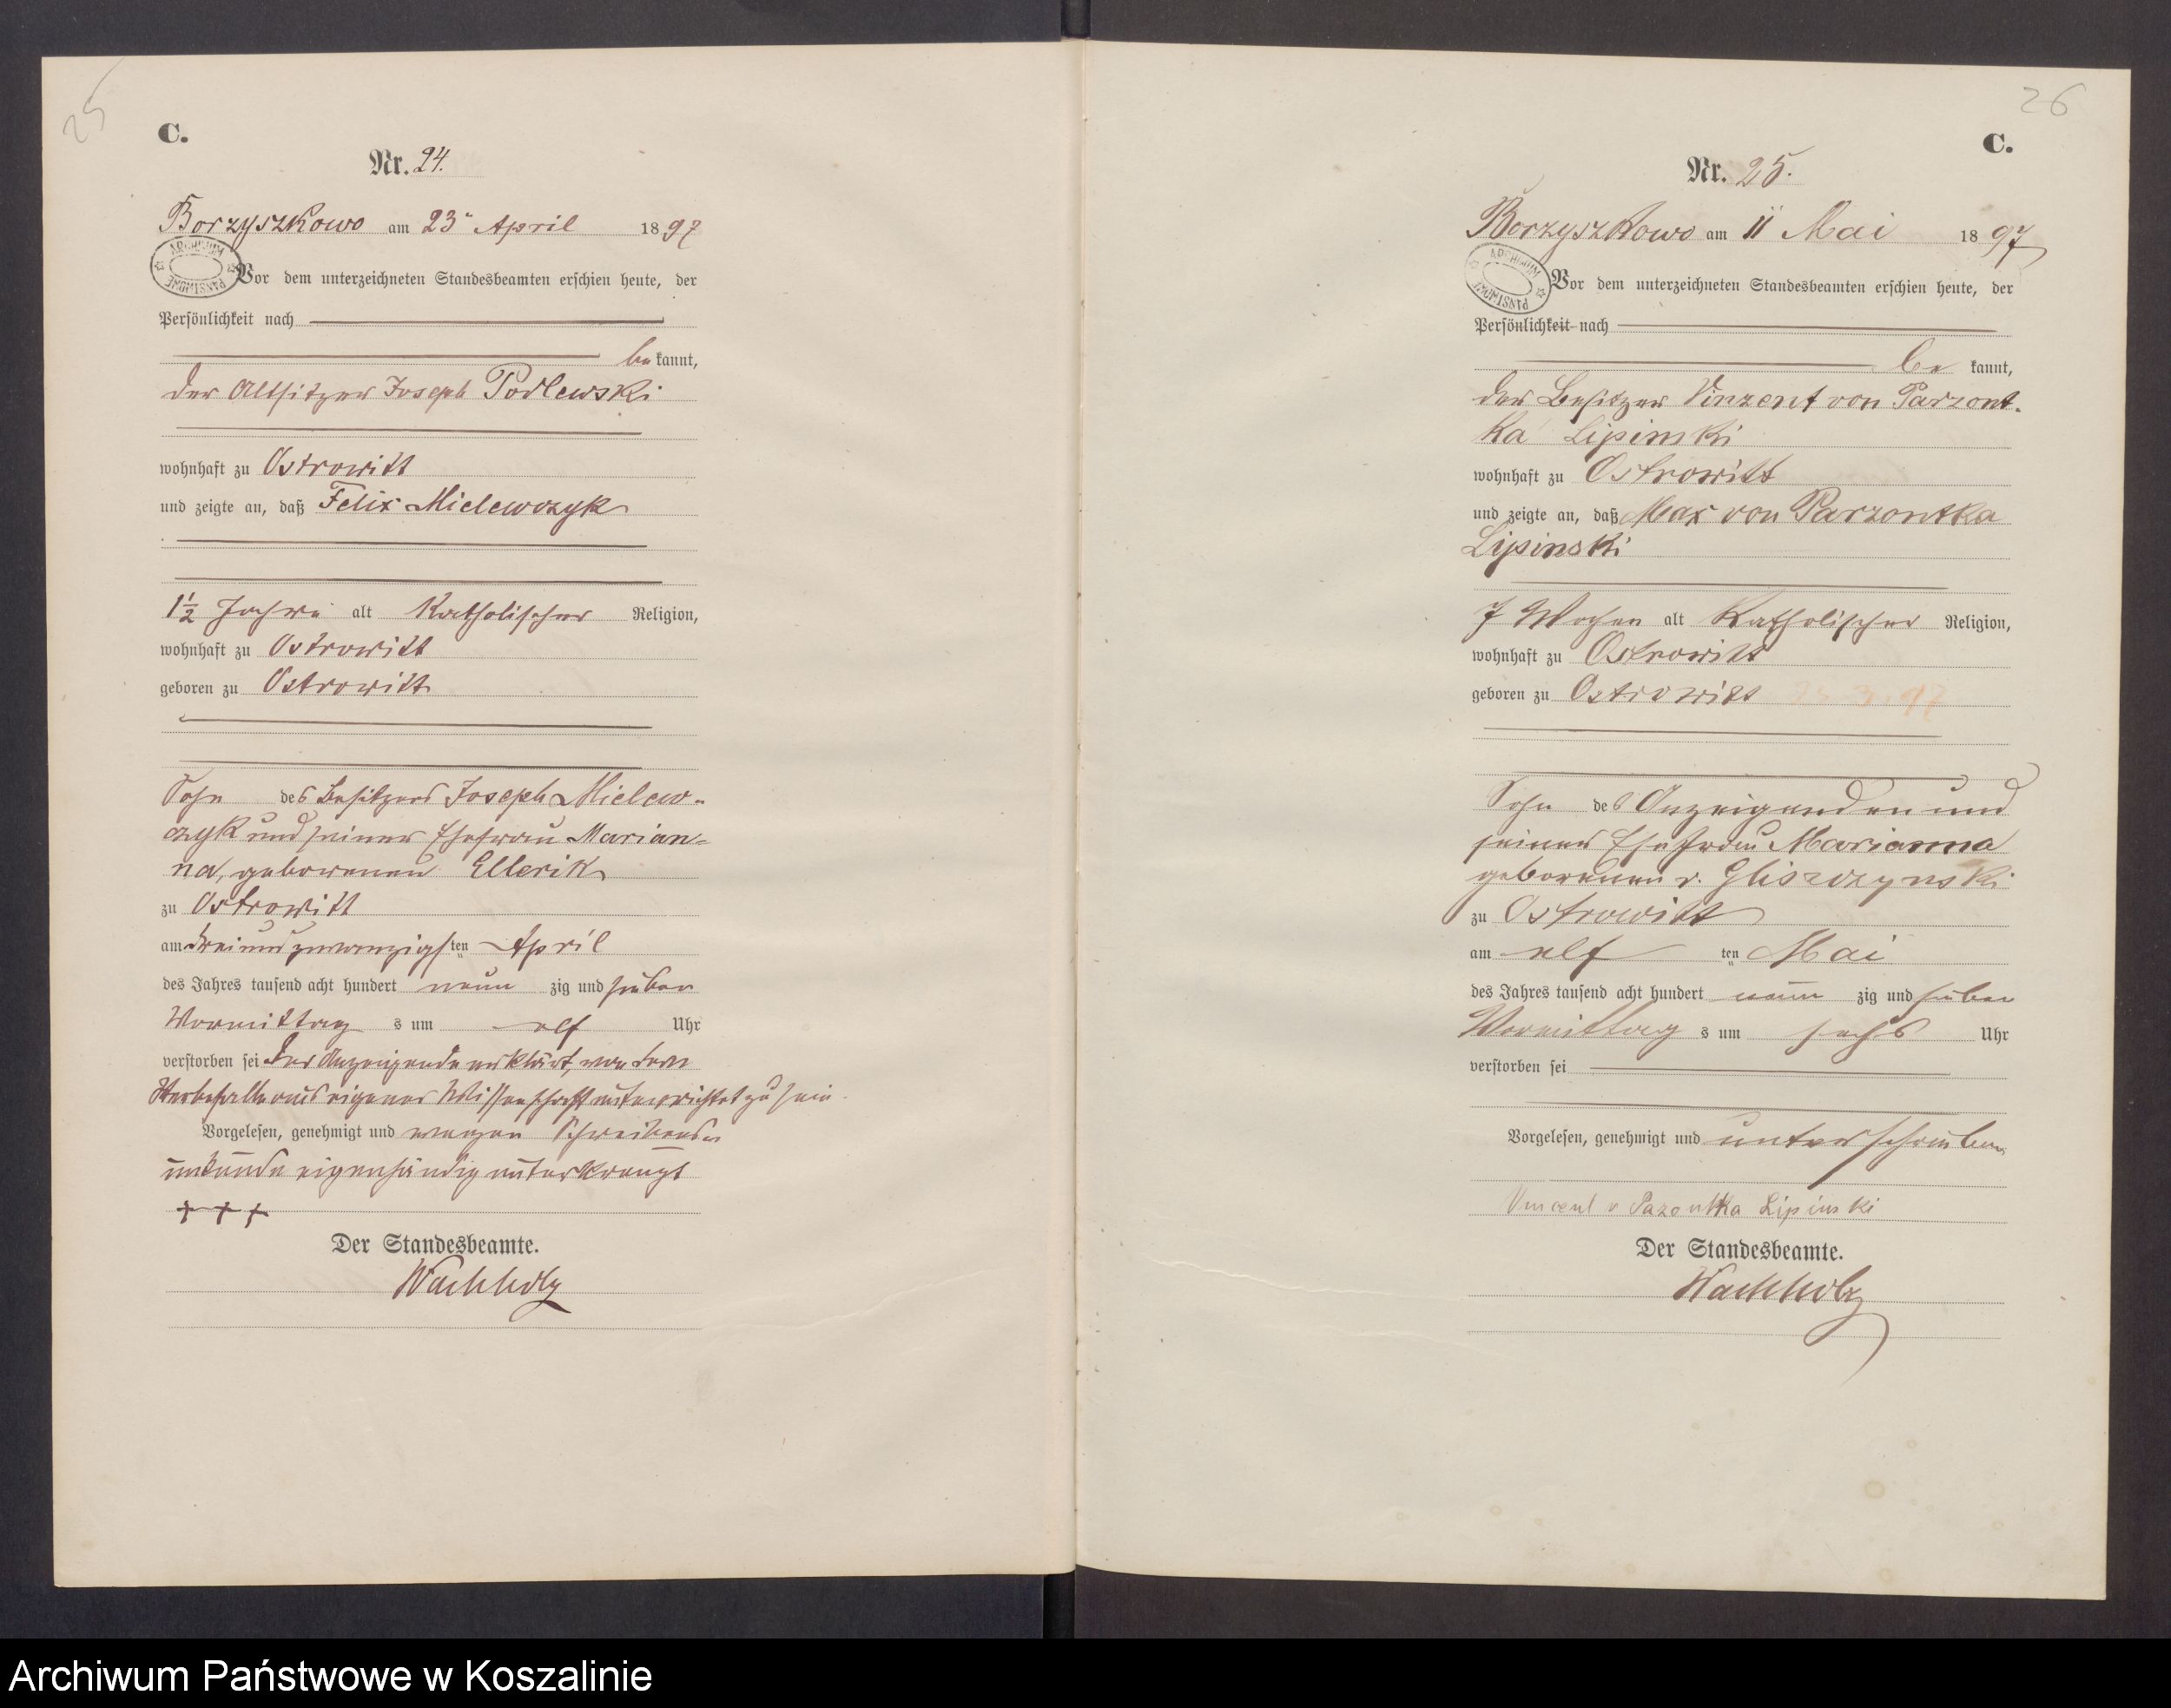 25
C.
Nr. 24.
Borzyszkowo am 23ⁿ April 1897
ARCHIWUM PAŃSTWOWE
Vor dem unterzeichneten Standesbeamten erschien heute, der
Persönlichkeit nach
bekannt,
der Altsitzer Joseph Podlewski
wohnhaft zu Ostrowitt
und zeigte an, daß Felix Mielewczyk
1½ Jahre alt Katholischer Religion,
wohnhaft zu Ostrowitt
geboren zu Ostrowitt
Sohn des Besitzers Joseph Mielew-
czyk und seiner Ehefrau Marian-
na, geborenen Ellerik
zu Ostrowitt
am dreiundzwanzigsten April
des Jahres tausend acht hundert neunzig und sieben
Vormittags um elf Uhr
verstorben sei Der Anzeigende erklärt, von dem
Sterbefalle aus eigener Wissenschaft unterrichtet zu sein.
Vorgelesen, genehmigt und wegen Schreibens
unkunde eigenhändig unterkreuzt
+ + +
Der Standesbeamte.
Wachholz
26
C.
Nr. 25.
Borzyszkowo am 11 Mai 1897
ARCHIWUM PAŃSTWOWE
Vor dem unterzeichneten Standesbeamten erschien heute, der
Persönlichkeit nach
bekannt,
der Besitzer Vinzent von Parzont-
ka Lipinski
wohnhaft zu Ostrowitt
und zeigte an, daß Max von Parzontka
Lipinski
7 Wochen alt Katholischer Religion,
wohnhaft zu Ostrowitt
geboren zu Ostrowitt 25.3.97
Sohn des Anzeigenden und
seiner Ehefrau Marianna
geborenen v. Gliszczynski
zu Ostrowitt
am elften Mai
des Jahres tausend acht hundert neunzig und sieben
Vormittags um sechs Uhr
verstorben sei
Vorgelesen, genehmigt und unterschrieben
Vincent v Pazontka Lipinski
Der Standesbeamte.
Wachholz
Archiwum Państwowe w Koszalinie